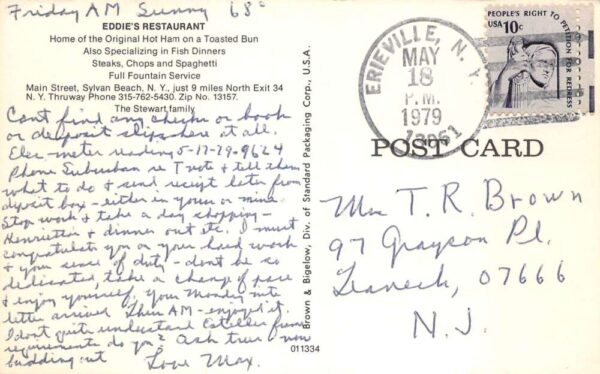 Friday AM Sunny 68°
EDDIE'S RESTAURANT
Home of the Original Hot Ham on a Toasted Bun
Also Specializing in Fish Dinners
Steaks, Chops and Spaghetti
Full Fountain Service
Main Street, Sylvan Beach, N. Y., just 9 miles North Exit 34
N. Y. Thruway Phone 315-762-5430. Zip No. 13157.
The Stewart family
Cant find any checks or book
or deposit slips here at all.
Elec- meter reading 5-17-79-9624
Phone Suburban re T vote & tell them
what to do & send receipt later from
deposit box - either in yours or mine.
Stop work & take a day shopping -
Henrietta & dinner out etc. I must
congratulate you on your hard work
& your sense of duty - dont be so
dedicated, take a change of pace
& enjoy yourself, your Monday nite
letter arrived Thurs AM - enjoyed it.
I dont quite understand
requirements do you? Ask now
budding out Love Max.
011334
Brown & Bigelow, Div. of Standard Packaging Corp., U.S.A.
ERIEVILLE, N. Y.
MAY
18
P.M.
1979
13061
PEOPLE'S RIGHT TO PETITION FOR REDRESS
USA 10c
POST CARD
T. R. Brown
97 Grayson Pl.
Teaneck, 07666
N. J.